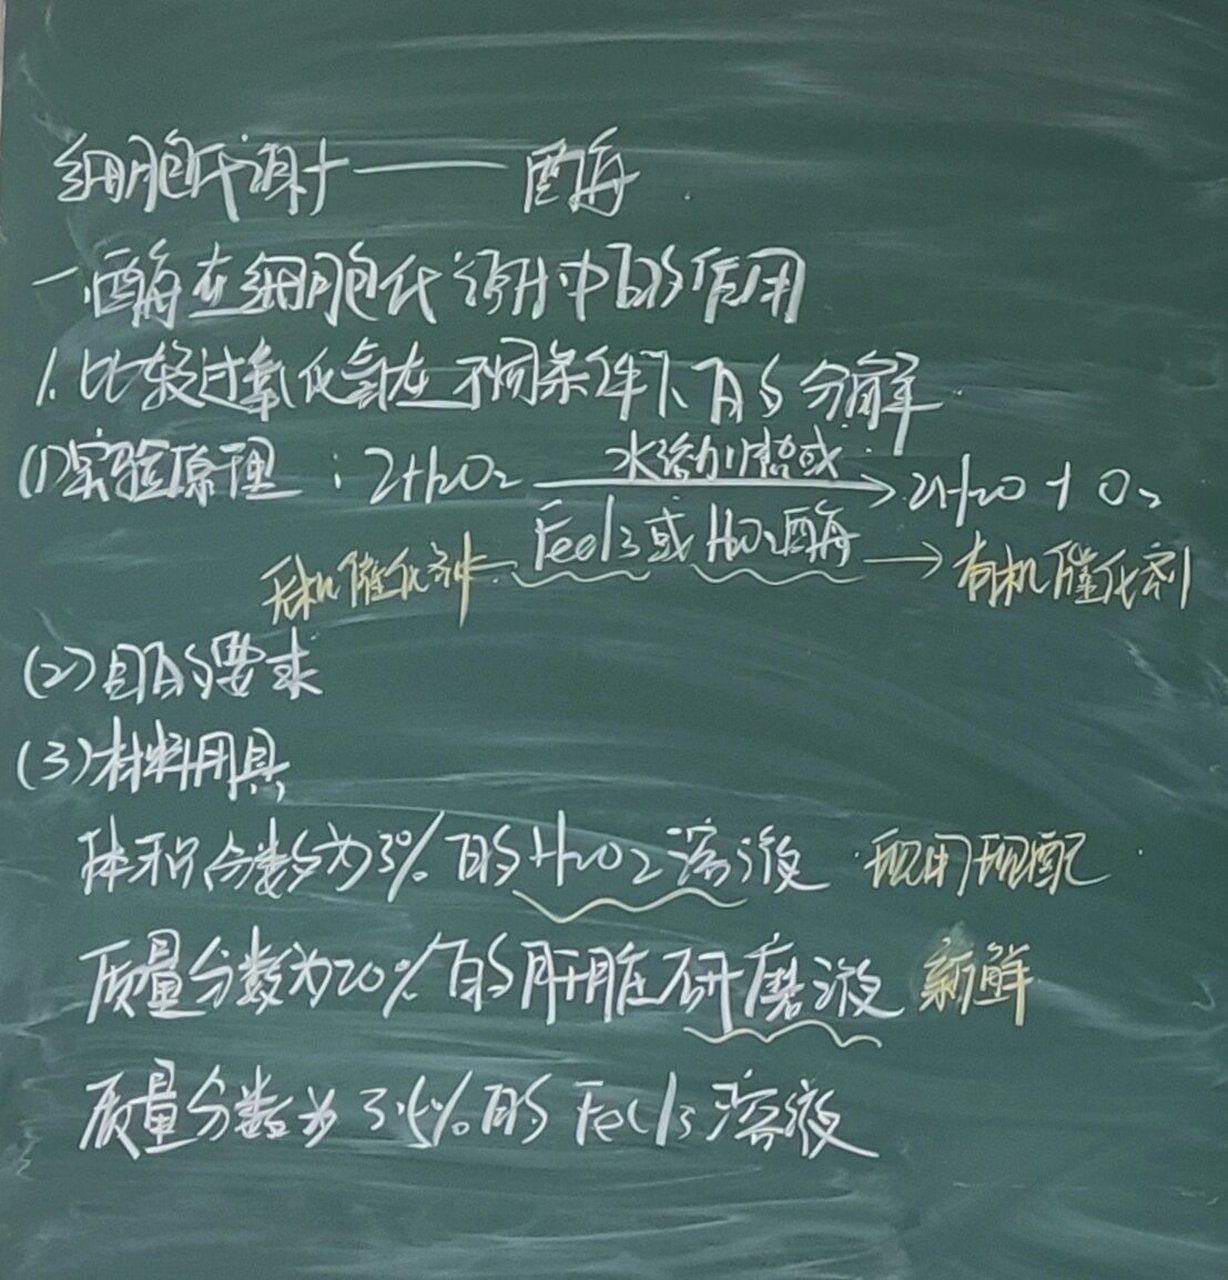 细胞代谢——酶
一.酶在细胞代谢中的作用
1.比较过氧化氢在不同条件下的分解
(1)实验原理:2H2O2 水浴加热或 FeCl3或H2O2酶 → 2H2O+O2
无机催化剂← →有机催化剂
(2)目的要求
(3)材料用具
体积分数为3%的H2O2溶液 现用现配
质量分数为20%的肝脏研磨液 新鲜
质量分数为3.5%的FeCl3溶液